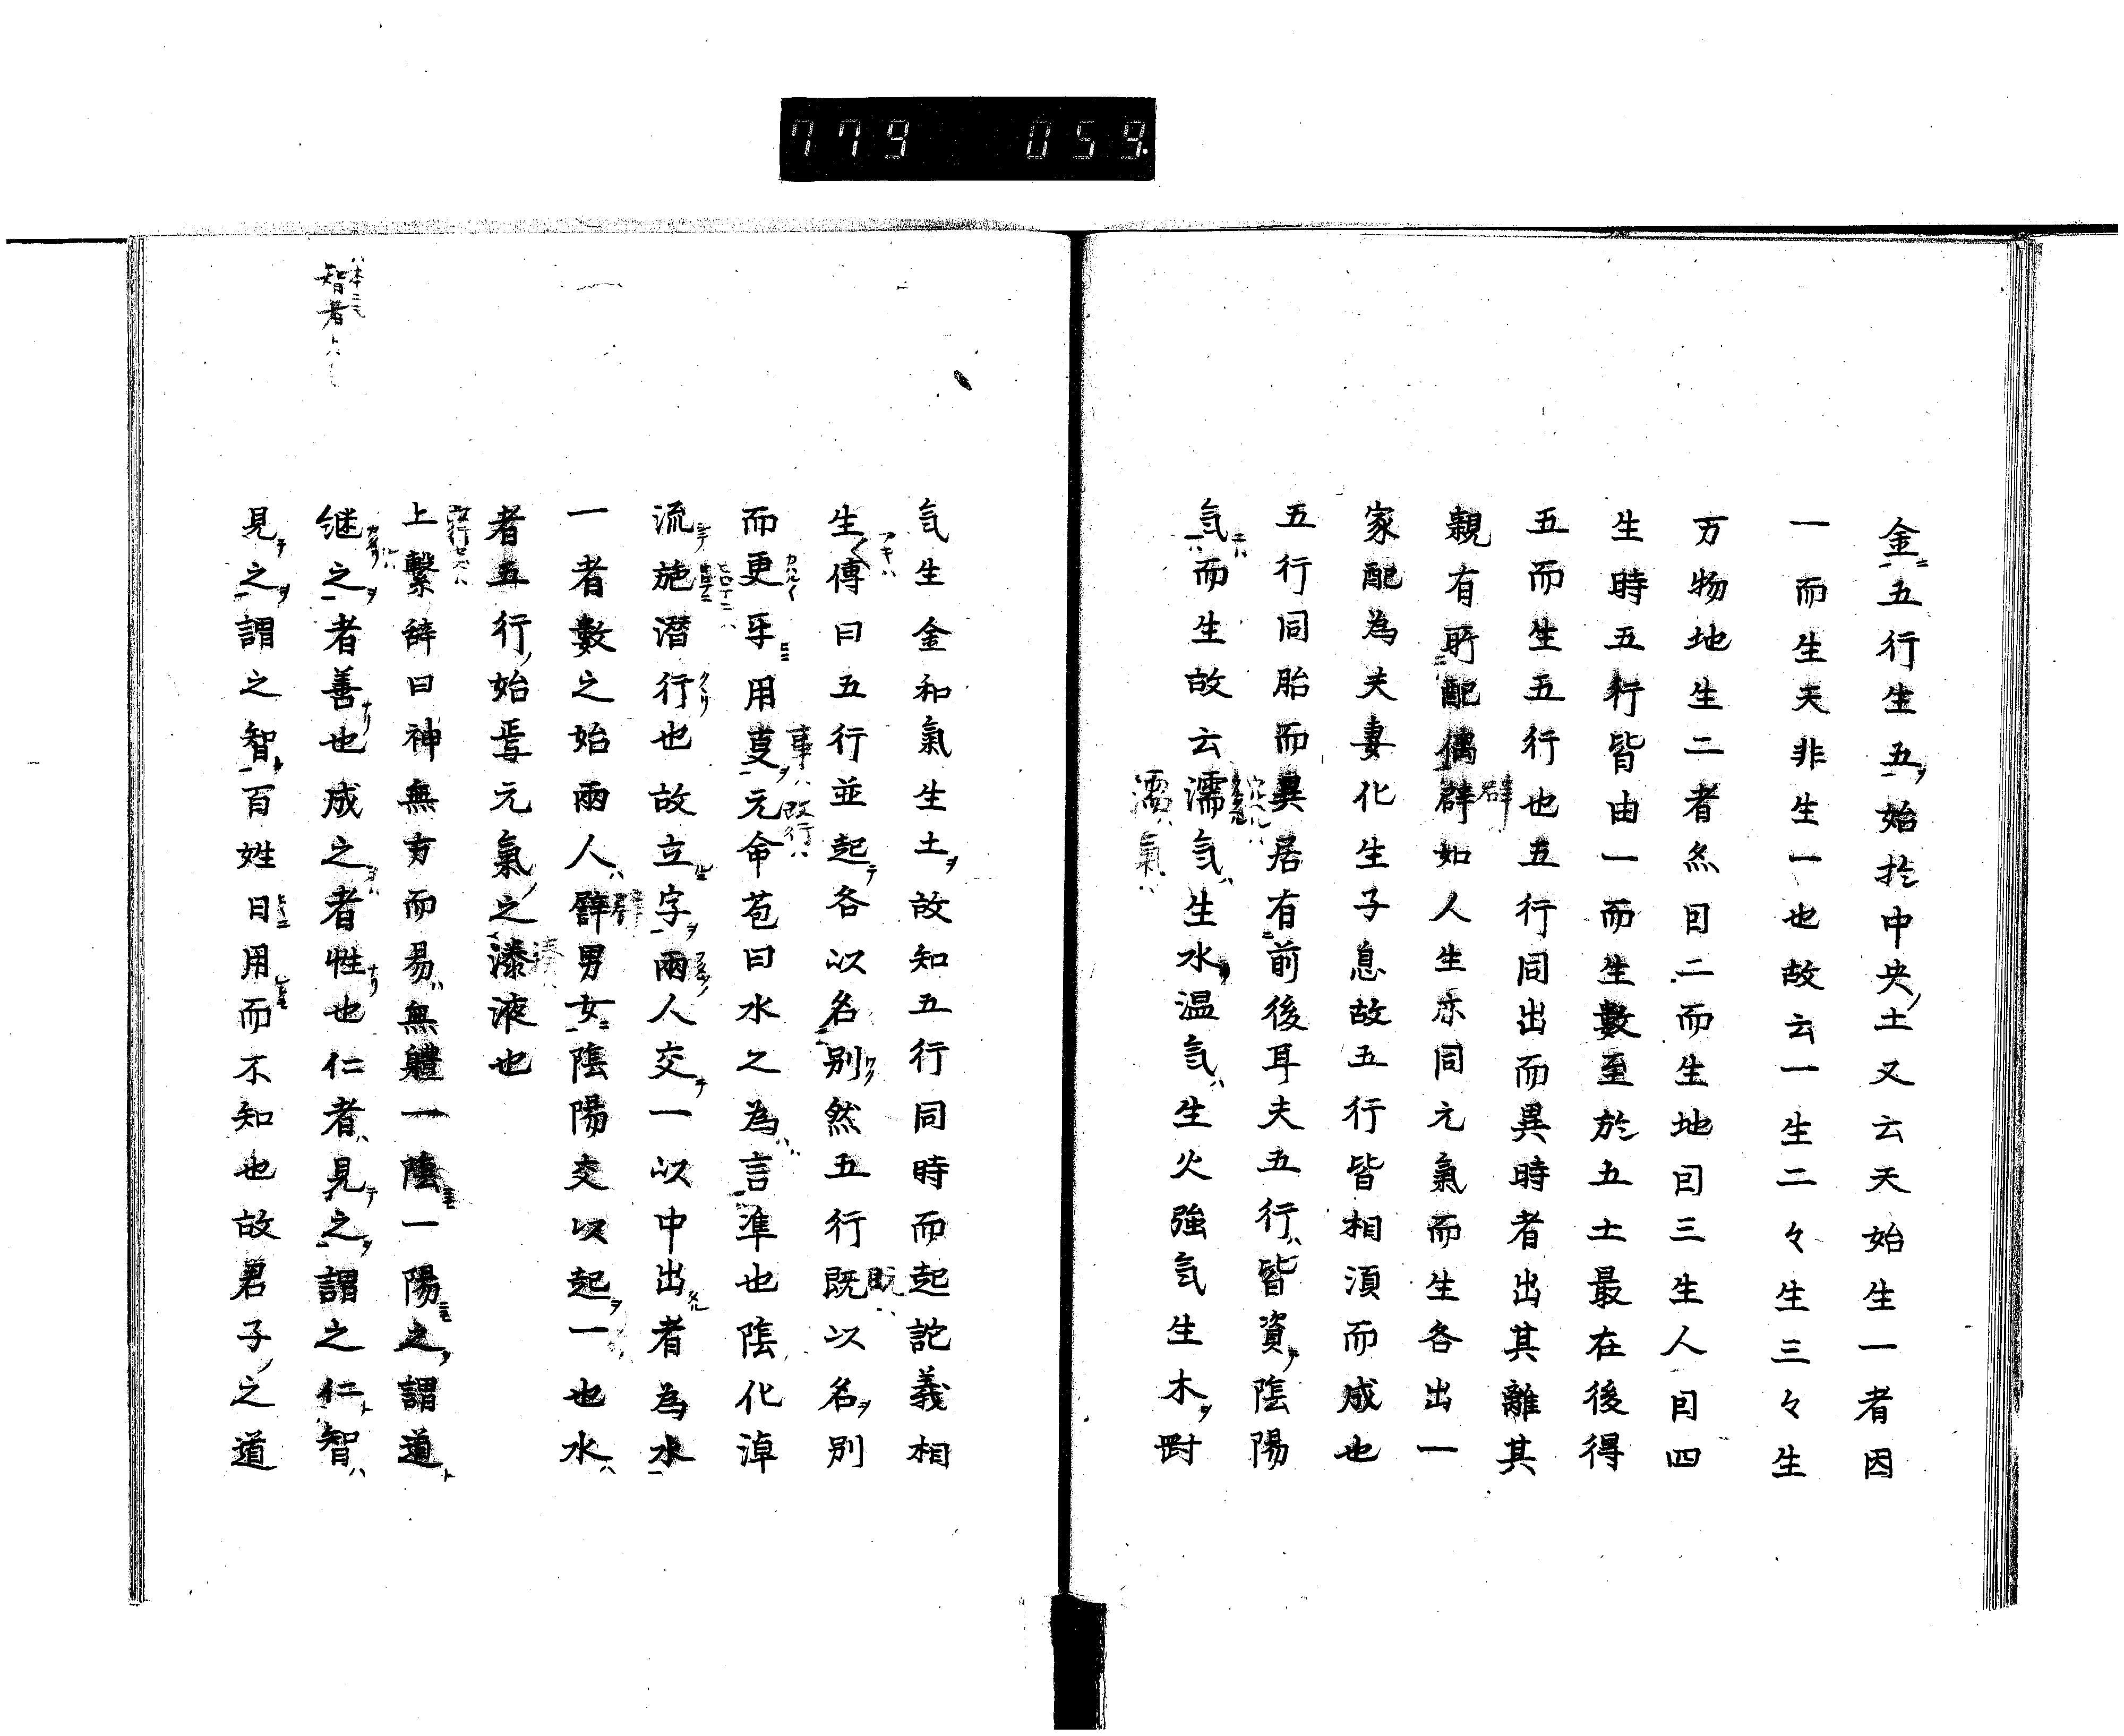 779 059
金五行生五始於中央土又云天始生一者因
一而生天非生一也故云一生二々生三々生
万物地生二者然因二而生地因三生人因四
生時五行皆由一而生數至於五土最在後得
五而生五行也五行同出而異時者出其離其
親有所配偶辟如人生亦同元氣而生各出一
家配為夫妻化生子息故五行皆相須而成也
五行同胎而異居有前後耳夫五行皆資陰陽
氣而生故云濡氣生水温氣生火強氣生木剛
濡氣
氣生金和氣生土故知五行同時而起託義相
生傳曰五行並起各以名別然五行既以名別
而更互用叓元命苞曰水之為言準也陰化淖
流施潜行也故立字兩人交一以中出者為水
一者數之始兩人辟男女陰陽交以起一也水
者五行始焉元氣之湊液也
上繫辞曰神無方而易無體一陰一陽之謂道
継之者善也成之者性也仁者見之謂之仁智
見之謂之智百姓日用而不知也故君子之道
智者